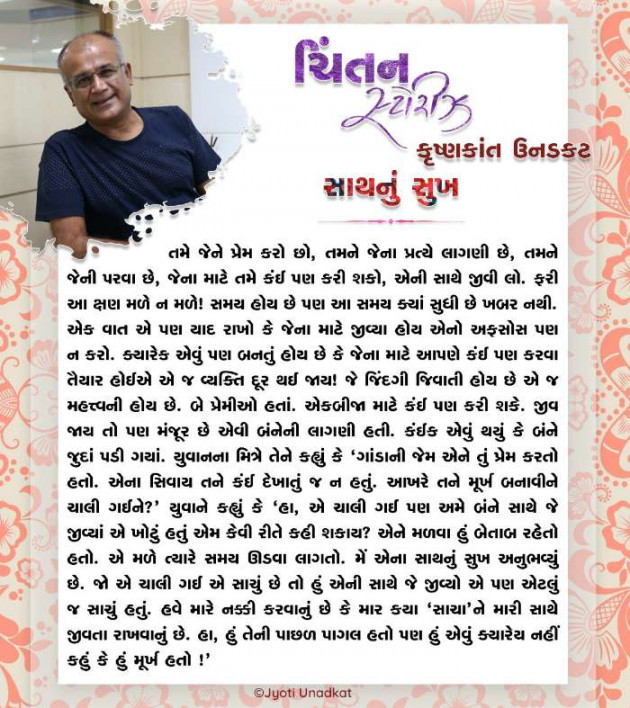 ચિંતન
સ્ટોરીઝ
કૃષ્ણકાંત ઉનડકટ
સાથનું સુખ
તમે જેને પ્રેમ કરો છો, તમને જેના પ્રત્યે લાગણી છે, તમને
જેની પરવા છે, જેના માટે તમે કંઈ પણ કરી શકો, એની સાથે જીવી લો. ફરી
આ ક્ષણ મળે ન મળે! સમય હોય છે પણ આ સમય ક્યાં સુધી છે ખબર નથી.
એક વાત એ પણ યાદ રાખો કે જેના માટે જીવ્યા હોય એનો અફસોસ પણ
ન કરો. ક્યારેક એવું પણ બનતું હોય છે કે જેના માટે આપણે કંઈ પણ કરવા
તૈયાર હોઈએ એ જ વ્યક્તિ દૂર થઈ જાય! જે જિંદગી જિવાતી હોય છે એ જ
મહત્ત્વની હોય છે. બે પ્રેમીઓ હતાં. એકબીજા માટે કંઈ પણ કરી શકે. જીવ
જાય તો પણ મંજૂર છે એવી બંનેની લાગણી હતી. કંઈક એવું થયું કે બંને
જુદાં પડી ગયાં. યુવાનના મિત્રે તેને કહ્યું કે ‘ગાંડાની જેમ એને તું પ્રેમ કરતો
હતો. એના સિવાય તને કંઈ દેખાતું જ ન હતું. આખરે તને મૂર્ખ બનાવીને
ચાલી ગઈને?’ યુવાને કહ્યું કે ‘હા, એ ચાલી ગઈ પણ અમે બંને સાથે જે
જીવ્યાં એ ખોટું હતું એમ કેવી રીતે કહી શકાય? એને મળવા હું બેતાબ રહેતો
હતો. એ મળે ત્યારે સમય ઊડવા લાગતો. મેં એના સાથનું સુખ અનુભવ્યું
છે. જો એ ચાલી ગઈ એ સાચું છે તો હું એની સાથે જે જીવ્યો એ પણ એટલું
જ સાચું હતું. હવે મારે નક્કી કરવાનું છે કે માર કયા ‘સાચા’ને મારી સાથે
જીવતા રાખવાનું છે. હા, હું તેની પાછળ પાગલ હતો પણ હું એવું ક્યારેય નહીં
કહું કે હું મૂર્ખ હતો !’
©Jyoti Unadkat